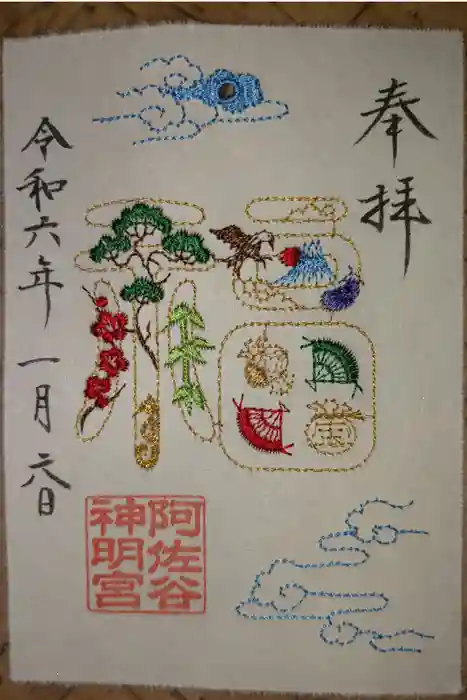 奉拝
福
令和六年 一月 六日
阿佐谷
神明宮